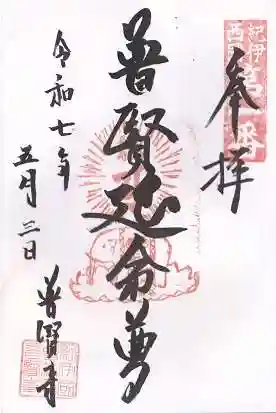 奉拝
普賢延命尊
令和七年
五月三日
普賢寺